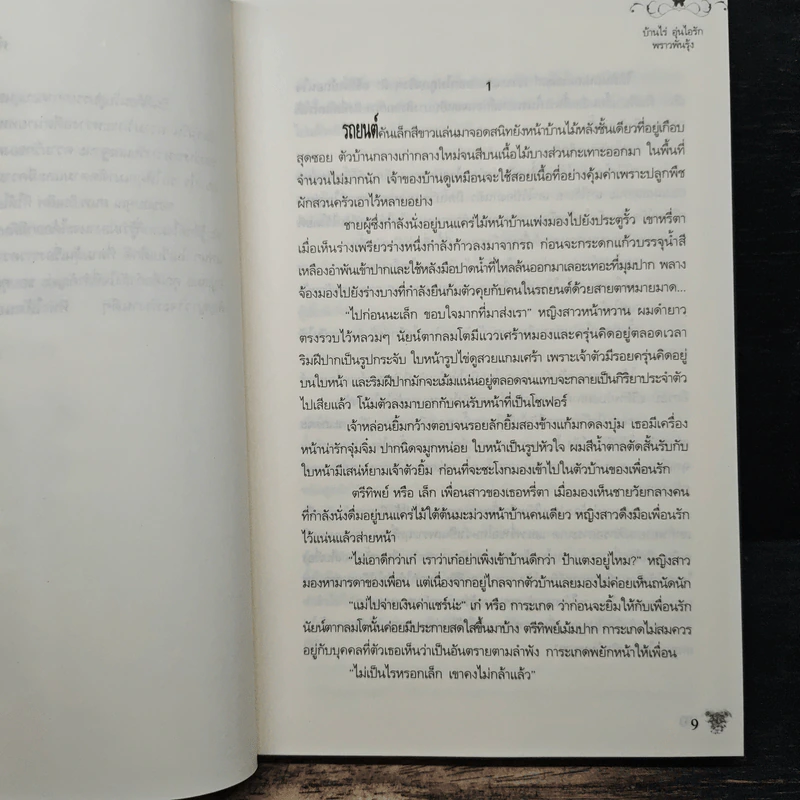 บ้านไร่ อุ่นไอรัก
พราวพันรุ้ง
1
รถยนต์คันเล็กสีขาวแล่นมาจอดสนิทยังหน้าบ้านไม้หลังชั้นเดียวที่อยู่เกือบ
สุดซอย ตัวบ้านกลางเก่ากลางใหม่จนสีบนเนื้อไม้บางส่วนกะเทาะออกมา ในพื้นที่
จำนวนไม่มากนัก เจ้าของบ้านดูเหมือนจะใช้สอยเนื้อที่อย่างคุ้มค่าเพราะปลูกพืช
ผักสวนครัวเอาไว้หลายอย่าง
ชายผู้ซึ่งกำลังนั่งอยู่บนแคร่ไม้หน้าบ้านเพ่งมองไปยังประตูรั้ว เขาหรี่ตา
เมื่อเห็นร่างเพรียวร่างหนึ่งกำลังก้าวลงมาจากรถ ก่อนจะกระดกแก้วบรรจุน้ำสี
เหลืองอำพันเข้าปากและใช้หลังมือปาดน้ำที่ไหลล้นออกมาเลอะเทอะที่มุมปาก พลาง
จ้องมองไปยังร่างบางที่กำลังยืนก้มตัวคุยกับคนในรถยนต์ด้วยสายตาหมายมาด...
"ไปก่อนนะเล็ก ขอบใจมากที่มาส่งเรา" หญิงสาวหน้าหวาน ผมดำยาว
ตรงรวบไว้หลวมๆ นัยน์ตากลมโตมีแววเศร้าหมองและครุ่นคิดอยู่ตลอดเวลา
ริมฝีปากเป็นรูปกระจับ ใบหน้ารูปไข่ดูสวยแกมเศร้า เพราะเจ้าตัวมีรอยครุ่นคิดอยู่
บนใบหน้า และริมฝีปากมักจะเม้มแน่นอยู่ตลอดจนแทบจะกลายเป็นกิริยาประจำตัว
ไปเสียแล้ว โน้มตัวลงมาบอกกับคนรับหน้าที่เป็นโชเฟอร์
เจ้าหล่อนยิ้มกว้างตอบจนรอยลักยิ้มสองข้างแก้มกดลงบุ๋ม เธอมีเครื่อง
หน้าน่ารักจุ๋มจิ๋ม ปากนิดจมูกหน่อย ใบหน้าเป็นรูปหัวใจ ผมสีน้ำตาลตัดสั้นรับกับ
ใบหน้ามีเสน่ห์ยามเจ้าตัวยิ้ม ก่อนที่จะชะโงกมองเข้าไปในตัวบ้านของเพื่อนรัก
ตรีทิพย์ หรือ เล็ก เพื่อนสาวของเธอหรี่ตา เมื่อมองเห็นชายวัยกลางคน
ที่กำลังนั่งดื่มอยู่บนแคร่ไม้ใต้ต้นมะม่วงหน้าบ้านคนเดียว หญิงสาวดึงมือเพื่อนรัก
ไว้แน่นแล้วส่ายหน้า
"ไม่เอาดีกว่าเก๋ เราว่าเก๋อย่าเพิ่งเข้าบ้านดีกว่า ป้าแตงอยู่ไหม?" หญิงสาว
มองหามารดาของเพื่อน แต่เนื่องจากอยู่ไกลจากตัวบ้านเลยมองไม่ค่อยเห็นถนัดนัก
"แม่ไปจ่ายเงินค่าแชร์น่ะ" เก๋ หรือ การะเกด ว่าก่อนจะยิ้มให้กับเพื่อนรัก
นัยน์ตากลมโตนั้นค่อยมีประกายสดใสขึ้นมาบ้าง ตรีทิพย์เม้มปาก การะเกดไม่สมควร
อยู่กับบุคคลที่ตัวเธอเห็นว่าเป็นอันตรายตามลำพัง การะเกดพยักหน้าให้เพื่อน
"ไม่เป็นไรหรอกเล็ก เขาคงไม่กล้าแล้ว"
9